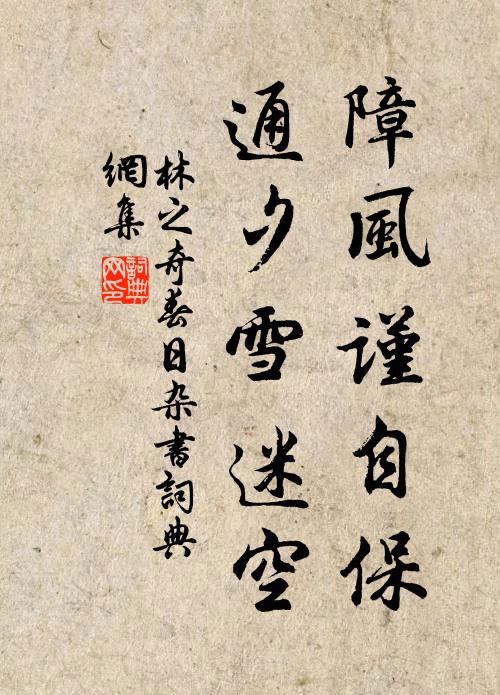 障風謹自保
通夕雪迷空
林之奇春日杂書詞典
網集
詞典
网印